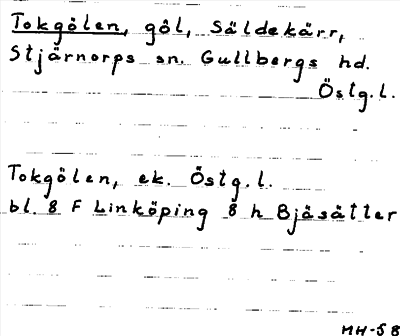 Tokgölen, göl, Säldekärr,
Stjärnorps sn. Gullbergs hd.
Östg.l.
Tokgölen, ek. Östg.l.
bl. 8 F Linköping 8 h Bjäsätter
MH-58